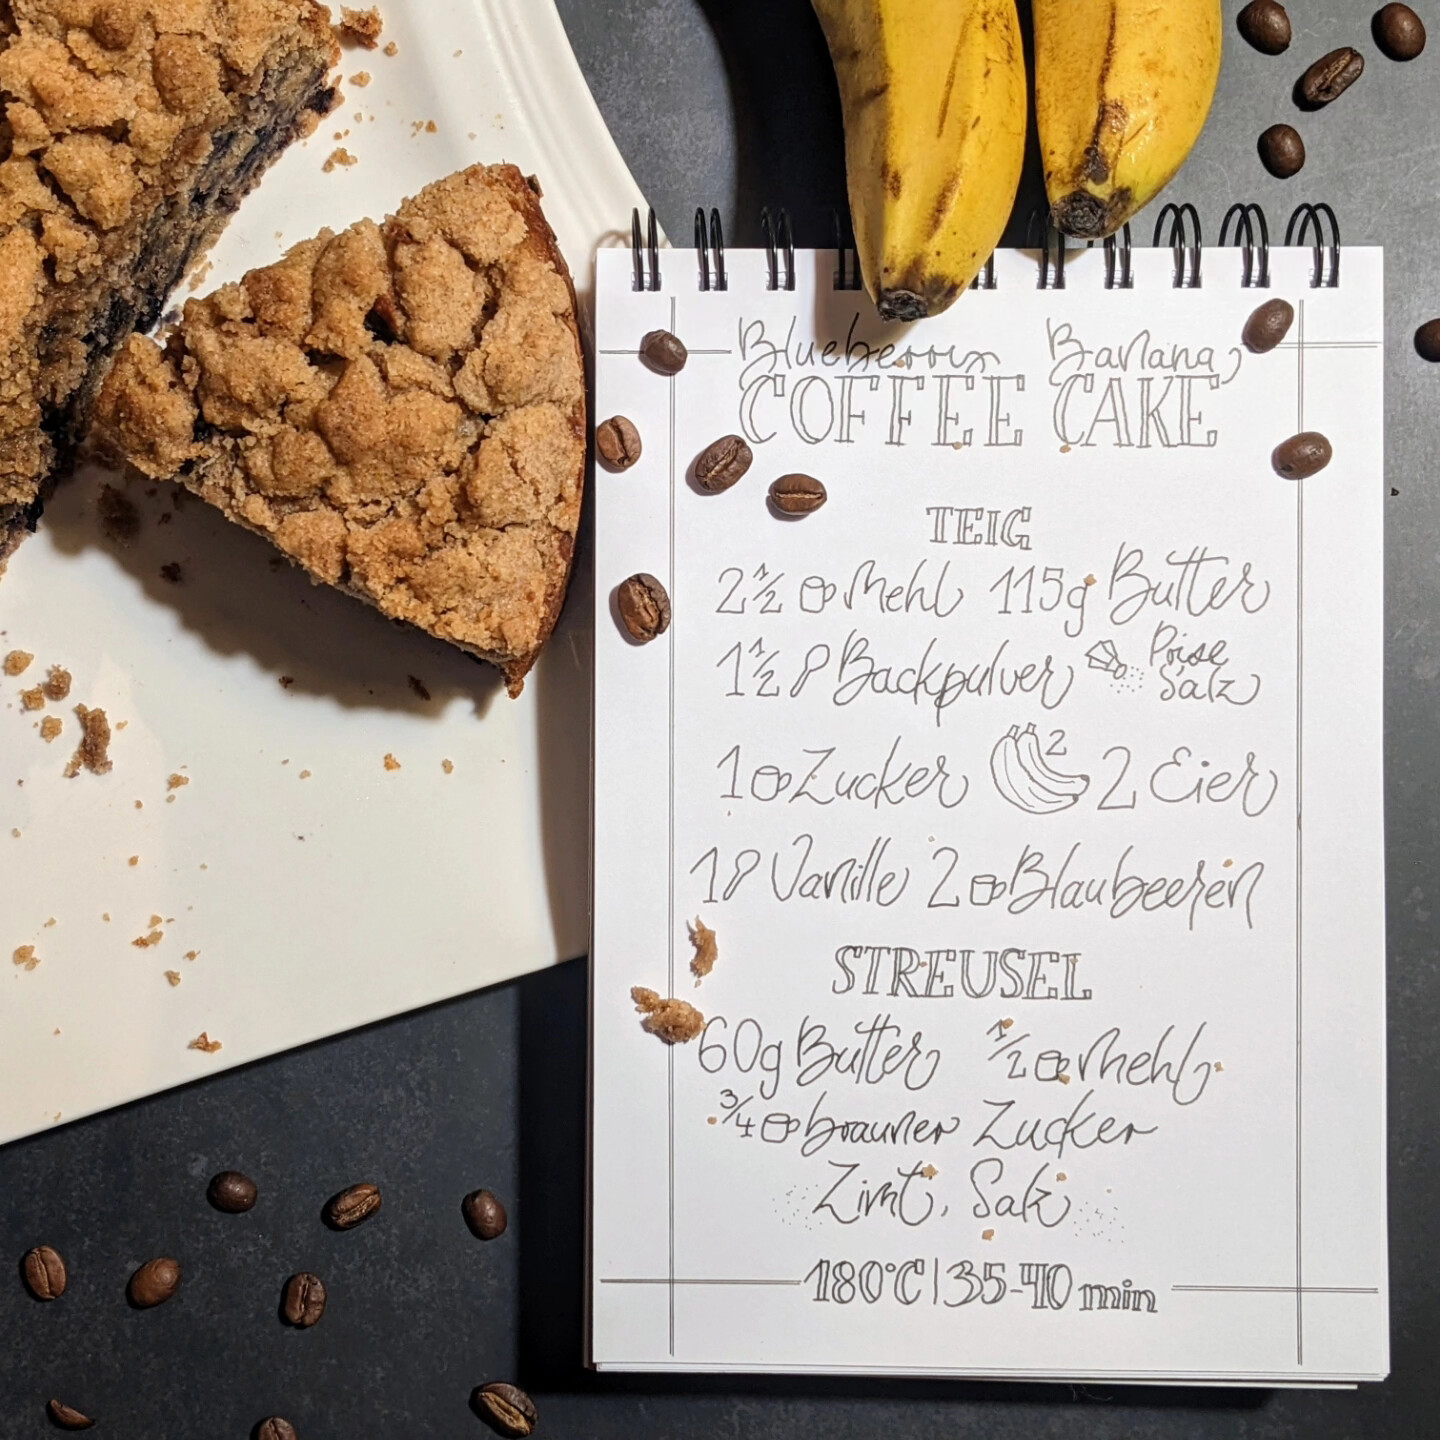 Blueberry Banana
COFFEE CAKE
TEIG
2 1/2 Mehl 115g Butter
1 1/2 Backpulver Prise Salz
1 Zucker 2 2 Eier
1 Vanille 2 Blaubeeren
STREUSEL
60g Butter 1/2 Mehl
3/4 brauner Zucker
Zimt, Salz
180°C | 35-40 min